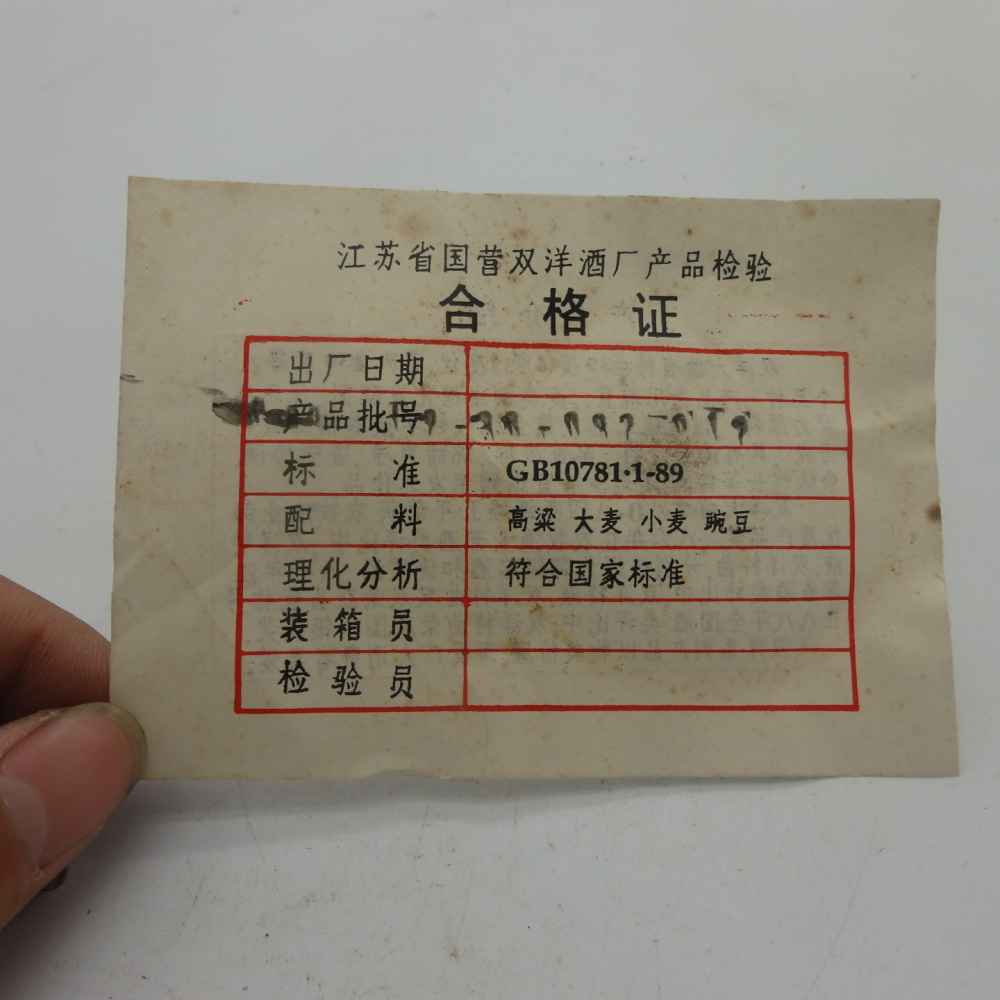 江苏省国营双洋酒厂产品检验
合格证
出厂日期
产品批号
标准 GB10781·1-89
配料 高粱 大麦 小麦 豌豆
理化分析 符合国家标准
装箱员
检验员